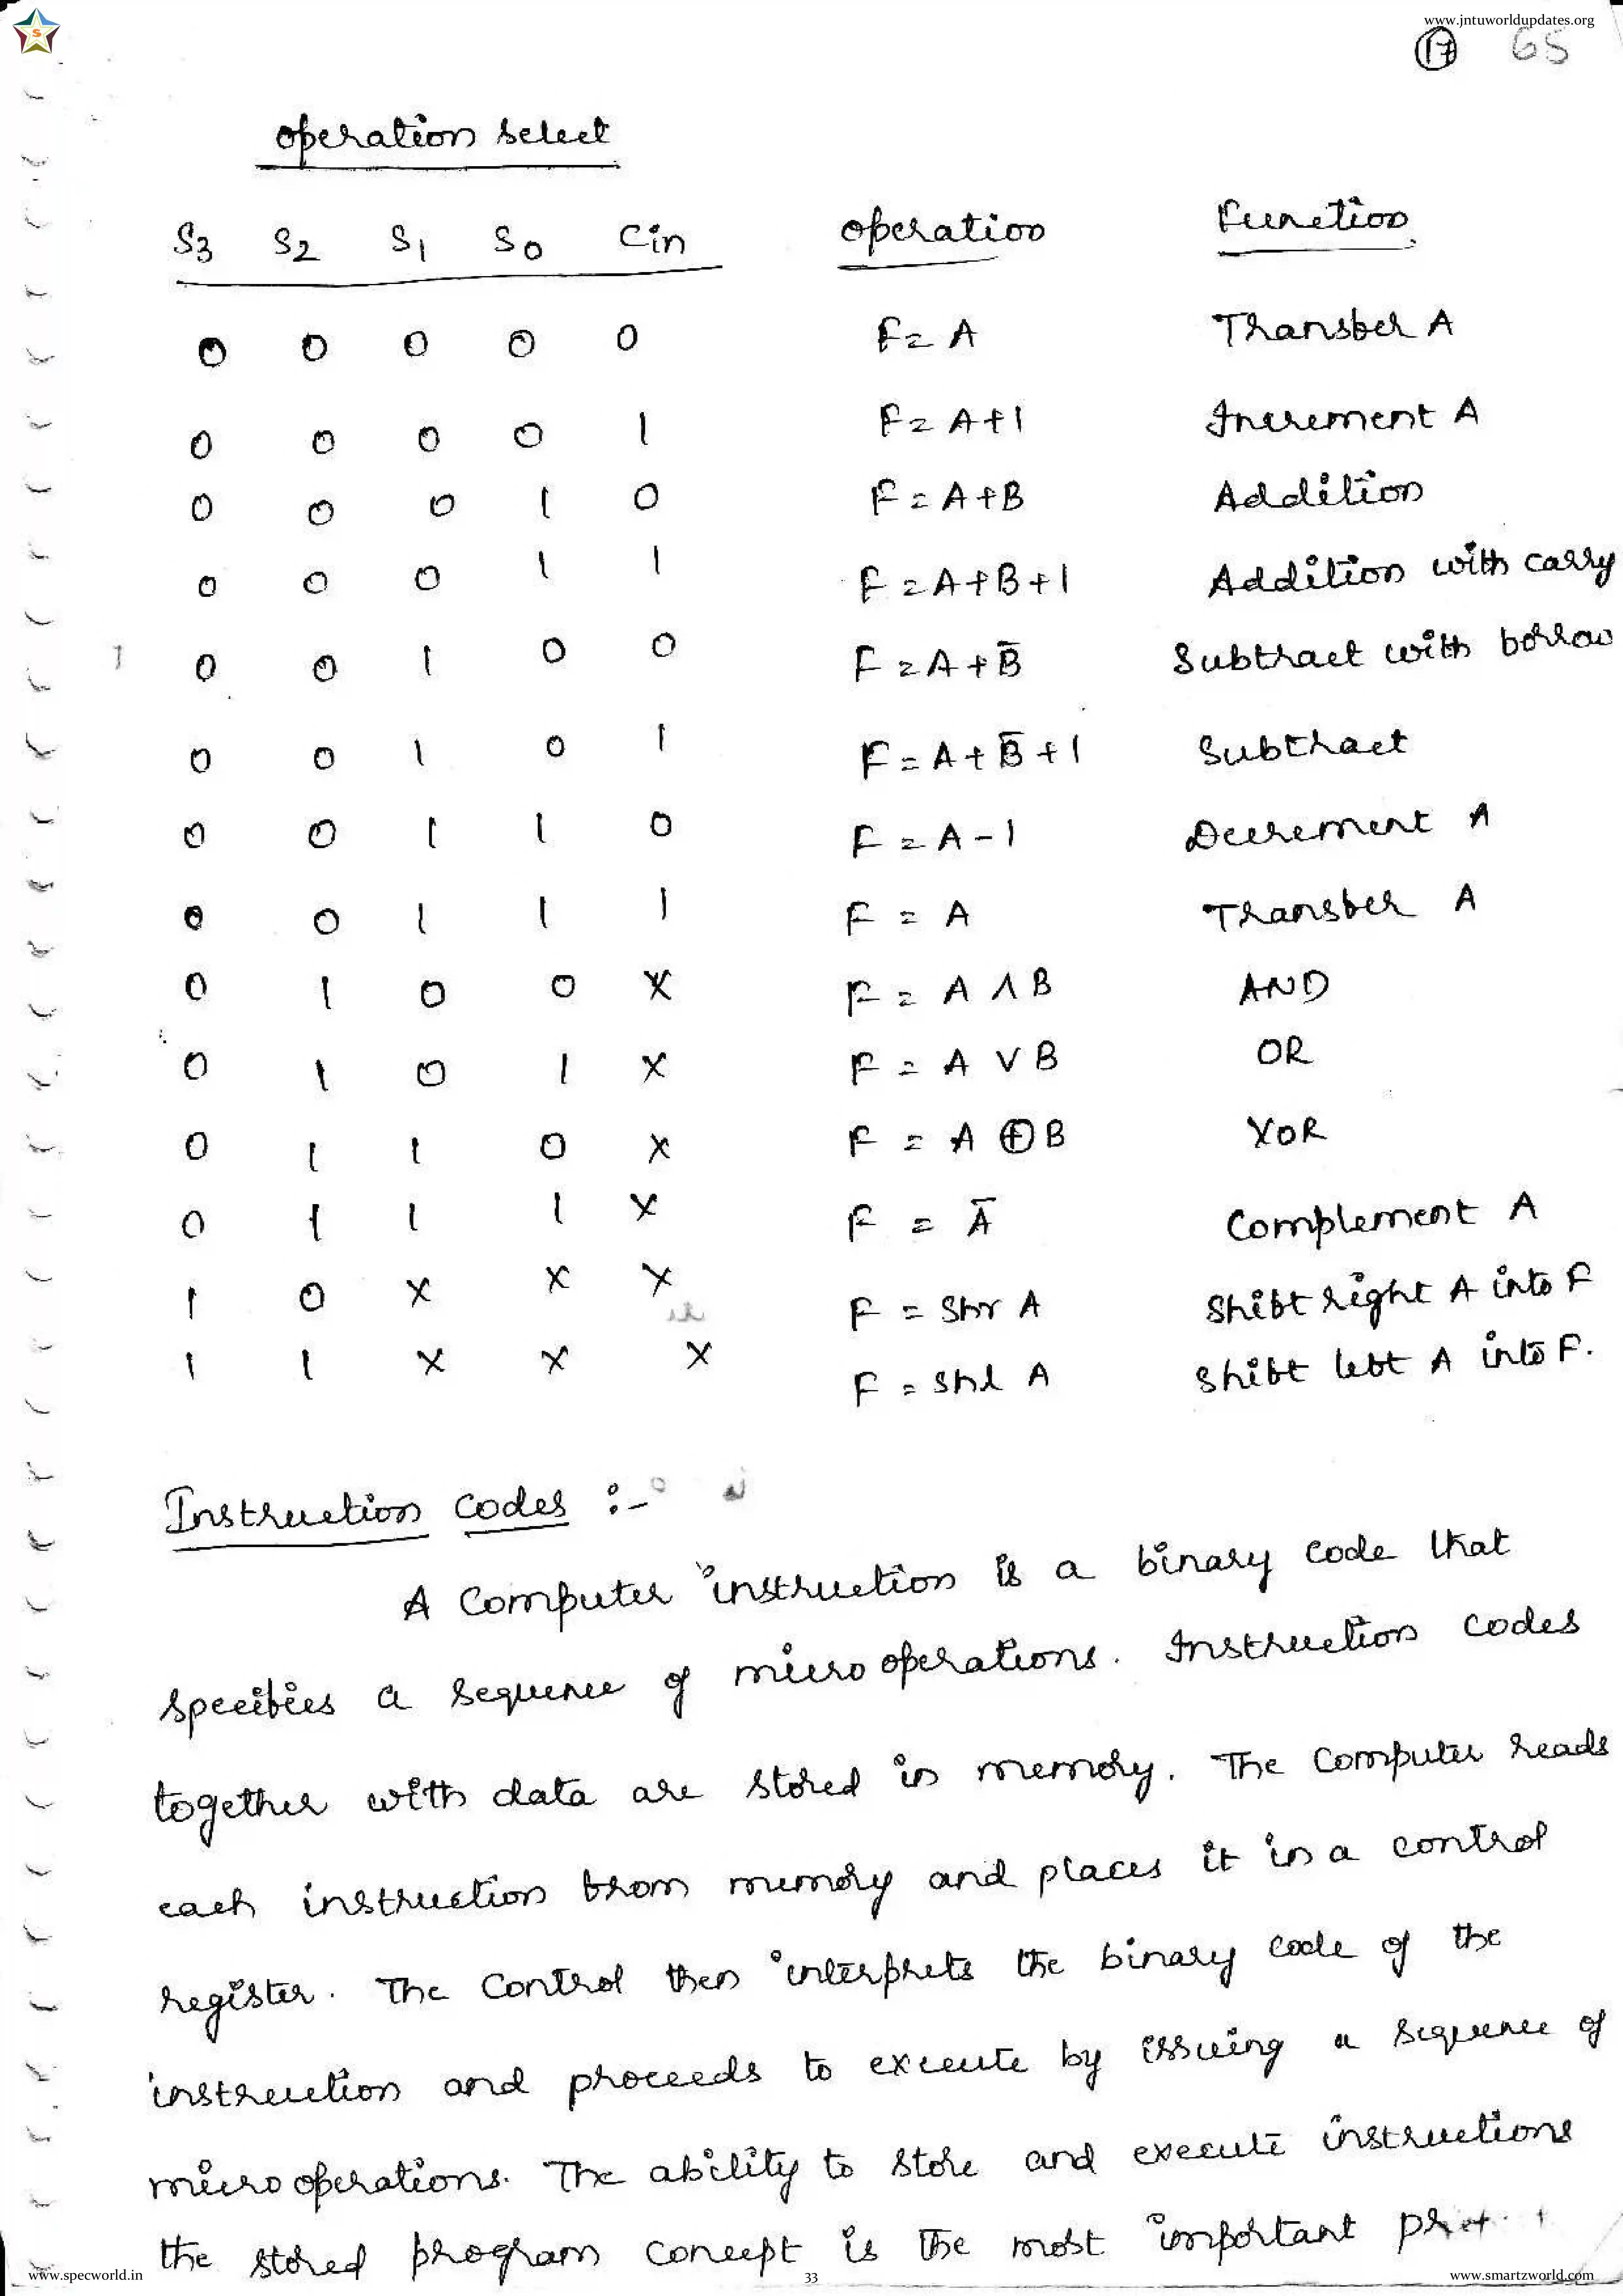 www.jntuworldupdates.org
S
17 65
operation select
S3 S2 S1 S0 Cin operation Function
0 0 0 0 0 F = A Transfer A
0 0 0 0 1 F = A+1 Increment A
0 0 0 1 0 F = A+B Addition
0 0 0 1 1 F = A+B+1 Addition with carry
0 0 1 0 0 F = A+B̄ Subtract with borrow
0 0 1 0 1 F = A+B̄+1 Subtract
0 0 1 1 0 F = A-1 Decrement A
0 0 1 1 1 F = A Transfer A
0 1 0 0 X F = A ∧ B AND
0 1 0 1 X F = A ∨ B OR
0 1 1 0 X F = A ⊕ B XOR
0 1 1 1 X F = Ā Complement A
1 0 X X X F = Shr A Shift right A into F
1 1 X X X F = Shl A Shift left A into F.
Instruction codes :-
A Computer instruction is a binary code that
specifies a sequence of micro operations. Instruction codes
together with data are stored in memory. The Computer reads
each instruction from memory and places it in a control
register. The Control then interprets the binary code of the
instruction and proceeds to execute by issuing a sequence of
micro operations. The ability to store and execute instructions
the stored program concept is the most important
www.specworld.in 33 www.smartzworld.com